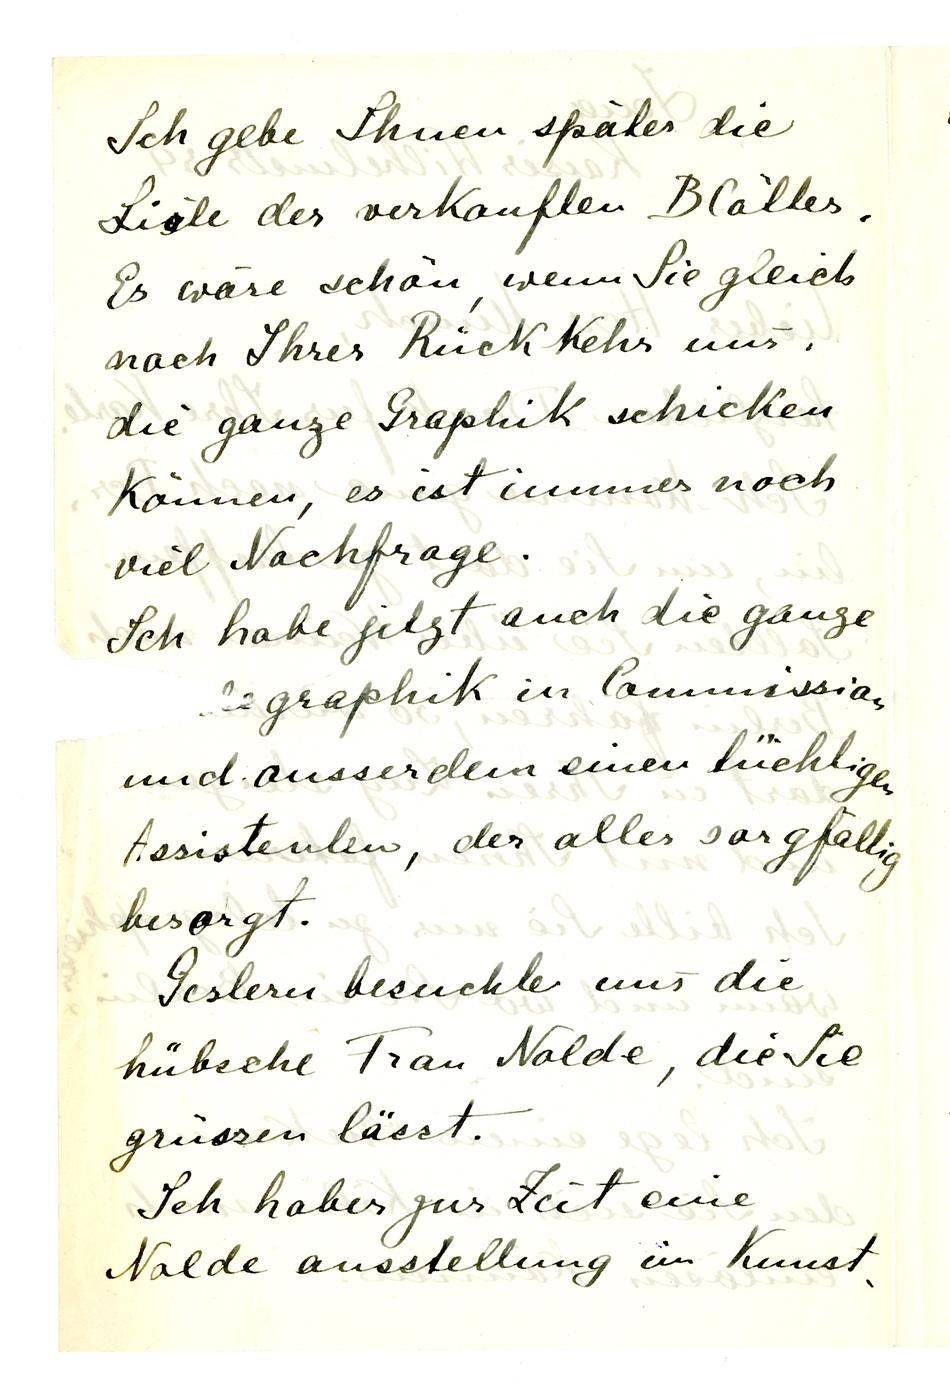 Ich gebe Ihnen später die
Liste der verkauften Blätter.
Es wäre schön, wenn Sie gleich
nach Ihrer Rückkehr uns
die ganze Graphik schicken
können, es ist immer noch
viel Nachfrage.
Ich habe jetzt auch die ganze
graphik in Commission
und ausserdem einen tüchtigen
Assistenten, der alles sorgfältig
besorgt.
Gestern besuchte uns die
hübsche Frau Nolde, die Sie
grüssen lässt.
Ich habe zur Zeit eine
Nolde ausstellung im Kunst